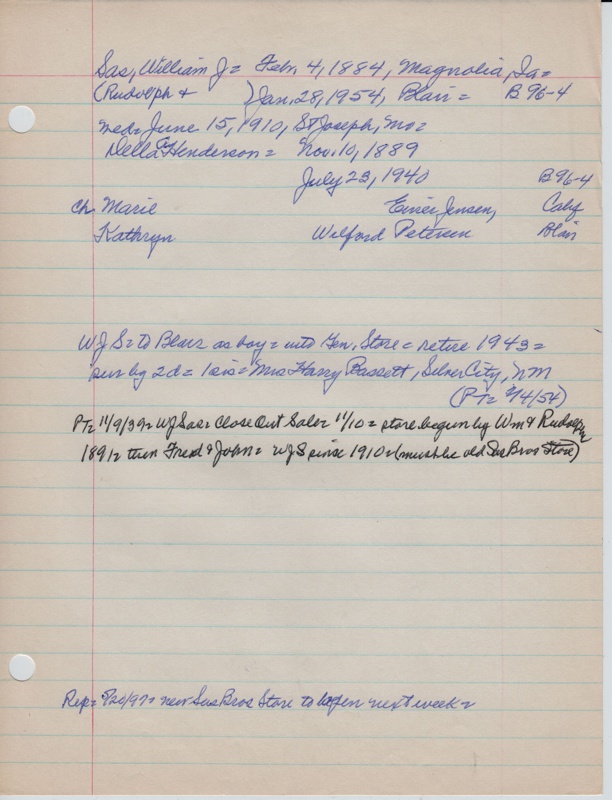 Sas, William J = Feb. 4, 1884, Magnolia, Ia =
(Rudolph + ) Jan. 28, 1954, Blair = B 96-4
med = June 15, 1910, St Joseph, Mo =
Della Henderson = Nov. 10, 1889
July 23, 1940 B 96-4
Ch. Marie Jensen, Calif
Kathryn Wilford Petersen Blair
WJS = to Blair as boy = into Gen. Store = retire 1943 =
surv by 2d = 1 sis = Mrs Harry Bassett, Silver City, NM
(PT = /4/54)
PT = 11/9/39 = WJ Sas = Close Out Sale = 11/10 = store begun by Wm & Rudolph
1891 = then Fred & John = WJS since 1910 = (must be old Sas Bros Store)
Rep = /20/97 = new Sas Bros Store to open next week =